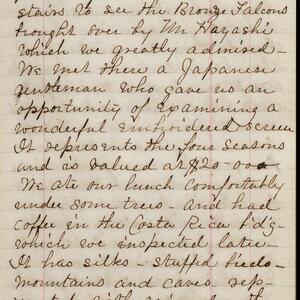 stairs to see the Bronze Falcons
brought over by Mr Hayashi
which we greatly admired -
We met there a Japanese
gentleman who gave us an
opportunity of examining a
wonderful embroidered screen
It represents the four seasons
and is valued at $20-000
We ate our lunch comfortably
under some trees - and had
coffee in the Costa Rica b'd'g -
which we inspected later -
It has silks - stuffed birds -
mountains and caves rep-